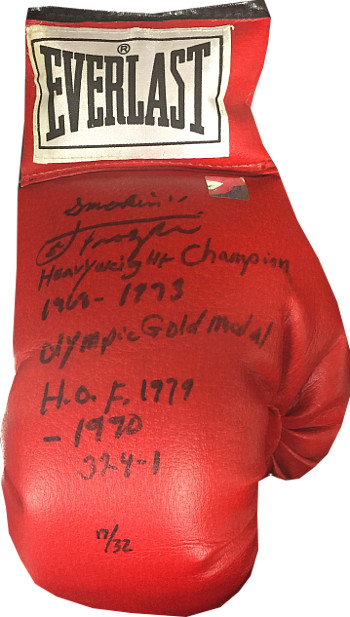 EVERLAST®
"Smokin"
Frazier
Heavyweight Champion
1969-1973
Olympic Gold Medal
H.O.F. 1979
-1990
32-4-1
17/32